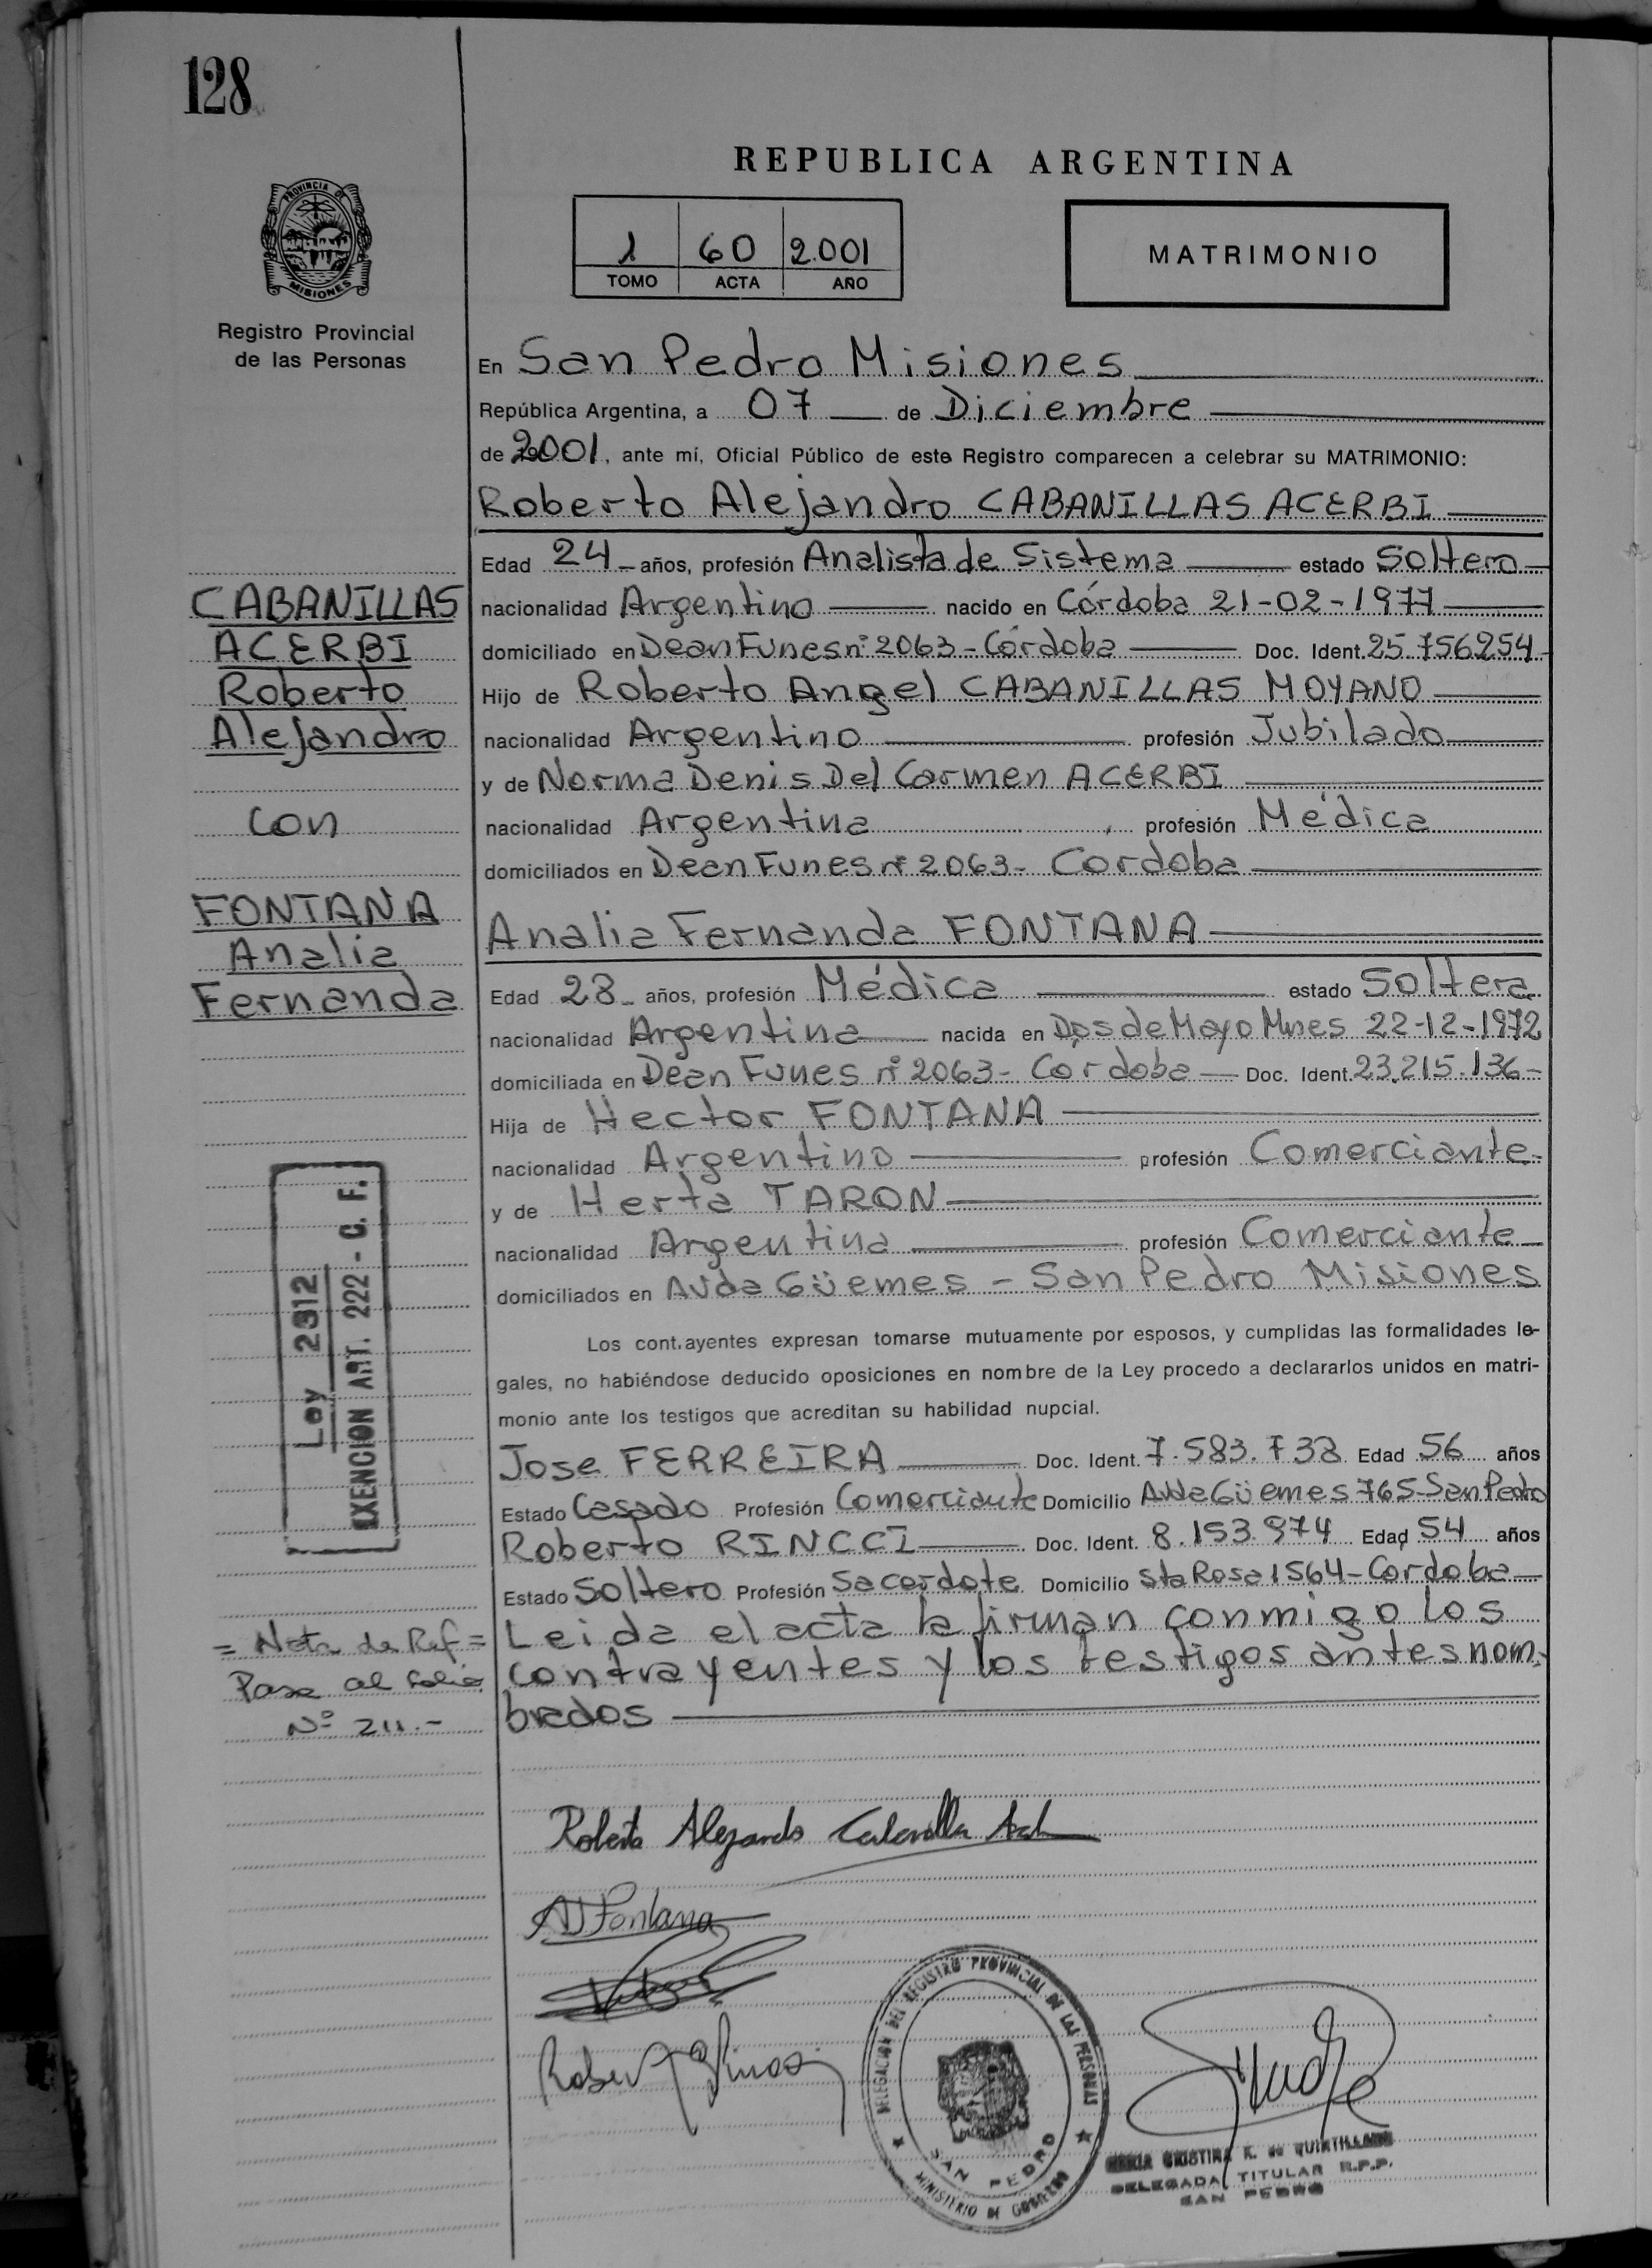 128
REPUBLICA ARGENTINA
PROVINCIA DE
MISIONES
Registro Provincial
de las Personas
1 60 2.001
TOMO ACTA AÑO
MATRIMONIO
En San Pedro Misiones
República Argentina, a 07 de Diciembre
de 2001, ante mí, Oficial Público de este Registro comparecen a celebrar su MATRIMONIO:
Roberto Alejandro CABANILLAS ACERBI
Edad 24 años, profesión Analista de Sistema estado Soltero
nacionalidad Argentino nacido en Córdoba 21-02-1977
domiciliado en Dean Funes nº 2063 - Córdoba Doc. Ident. 25.756254
Hijo de Roberto Angel CABANILLAS MOYANO
nacionalidad Argentino profesión Jubilado
y de Norma Denis Del Carmen ACERBI
nacionalidad Argentina profesión Médica
domiciliados en Dean Funes nº 2063 - Cordoba
Analia Fernanda FONTANA
Edad 28 años, profesión Médica estado Soltera
nacionalidad Argentina nacida en Dos de Mayo Mnes 22-12-1972
domiciliada en Dean Funes nº 2063 - Cordoba Doc. Ident. 23.215.136
Hija de Hector FONTANA
nacionalidad Argentino profesión Comerciante
y de Herta TARON
nacionalidad Argentina profesión Comerciante
domiciliados en Avda Güemes - San Pedro Misiones
Los contrayentes expresan tomarse mutuamente por esposos, y cumplidas las formalidades le-
gales, no habiéndose deducido oposiciones en nombre de la Ley procedo a declararlos unidos en matri-
monio ante los testigos que acreditan su habilidad nupcial.
Jose FERREIRA Doc. Ident. 7.583.738 Edad 56 años
Estado Casado Profesión Comerciante Domicilio Avda Güemes 765 San Pedro
Roberto RINCCI Doc. Ident. 8.153.974 Edad 54 años
Estado Soltero Profesión Sacerdote Domicilio Sta Rosa 1564 - Cordoba
Leida el acta la firman conmigo los
contrayentes y los testigos antes nom-
brados
CABANILLAS
ACERBI
Roberto
Alejandro
con
FONTANA
Analia
Fernanda
Ley 2312
EXENCION ART. 222 - C. F.
= Nota de Ref =
Pasa al folio
Nº 211.-
Roberto Alejandro
Fontana
DELEGACION DEL REGISTRO PROVINCIAL DE LAS PERSONAS
SAN PEDRO
MINISTERIO DE GOBIERNO
MARIA CRISTINA K. de QUINTILLANO
DELEGADA TITULAR R.P.P.
SAN PEDRO